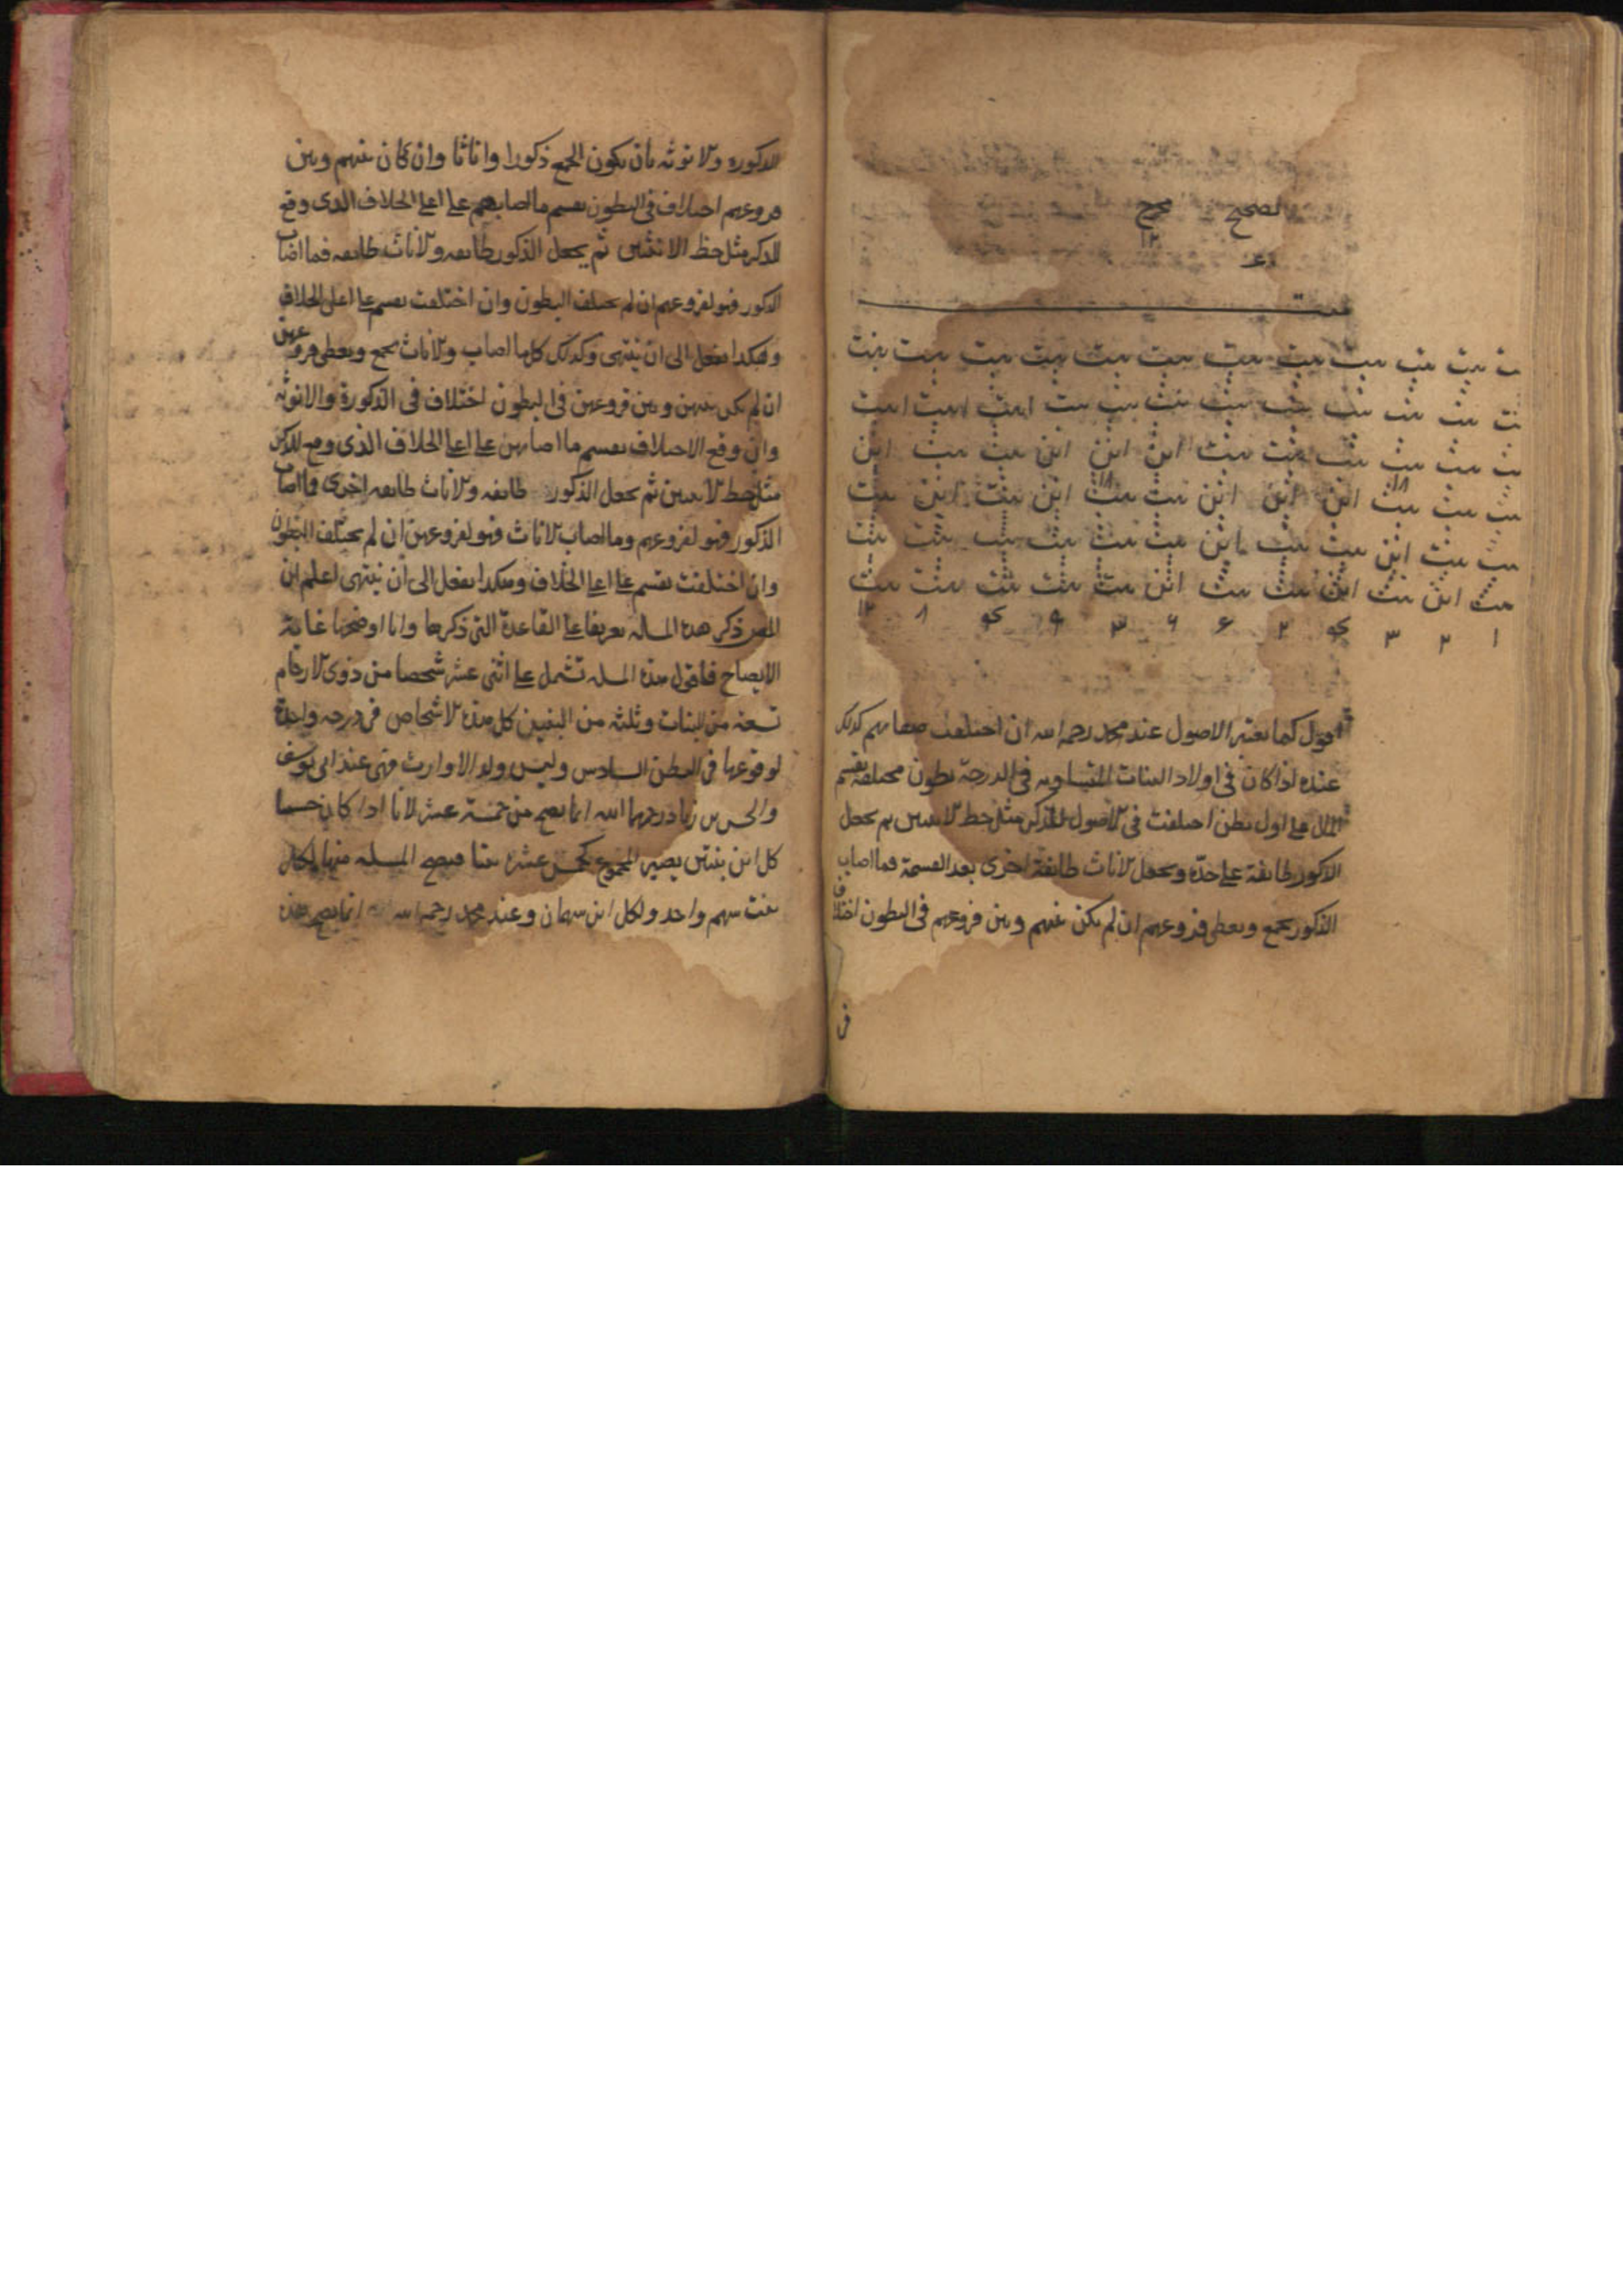 تصحيح مخرج
١٢
ميت
بنت بنت بنت بنت بنت بنت بنت بنت بنت بنت بنت بنت
بنت بنت بنت بنت بنت بنت بنت بنت بنت
بنت بنت بنت بنت بنت بنت ابن ابن ابن بنت بنت ابن
بنت بنت بنت ابن ابن ابن بنت بنت ابن بنت ابن بنت
بنت بنت ابن بنت بنت ابن بنت بنت بنت بنت بنت بنت
بنت ابن بنت ابن بنت بنت ابن بنت بنت بنت بنت بنت
١ ٢ ٣ ٢ ٦ ٣ ٩ ٨ ١٢
اقول كما يعتبر الاصول عند محمد رحمه الله ان اختلفت صفاتهم كذلك
عنده اذا كان في اولاد البنات المتساويه في الدرجة بطون مختلفة يقسم
المال على اول بطن اختلفت في الاصول للذكر مثل حظ الانثيين ثم يجعل
الذكور طايفة على حدة ويجعل الاناث طايفة اخرى بعد القسمة فما اصاب
الذكور يجمع ويعطى فروعهم ان لم يكن بينهم وبين فروعهم في البطون اختلاف
في
الذكورة والانوثه بان يكون الجمع ذكورا واناثا وان كان بينهم وبين
فروعهم اختلاف في البطون يقسم ما اصابهم على اعلى الخلاف الذي وقع
للذكر مثل حظ الانثيين ثم يجعل الذكور طايفه والاناث طايفه فما اصاب
الذكور فهو لفروعهم ان لم يختلف البطون وان اختلفت يقسم على اعلى الخلاف
وهكدا يفعل الى ان ينتهى وكذلك كلما اصاب الاناث يجمع ويعطى فروعهن
ان لم يكن بينهن وبين فروعهن في البطون اختلاف في الذكورة والانوثه
وان وقع الاختلاف يقسم ما اصابهن على اعلى الخلاف الذي وقع للذكر
مثل حظ الانثيين ثم يجعل الذكور طايفه والاناث طايفه اخرى فما اصاب
الذكور فهو لفروعهم وما اصاب الاناث فهو لفروعهن ان لم يختلف البطون
وان اختلفت تقسم على اعلى الخلاف وهكدا يفعل الى ان ينتهى اعلم ان
المص ذكر هذه المسله تعريفا على القاعدة التي ذكرها وانا اوضحها غاية
الايضاح فاقول هذه المسله تشمل على اثنى عشر شخصا من ذوى الارحام
تسعة من البنات وثلثه من البنين كل هذه الاشخاص في درجه واحدة
لوقوعها في البطن السادس وليس ولد الاوارث فهى عند ابى يوسف
والحسن بن زياد رحمهما الله انما يصح من خمسة عشر لانا اذا كان حسبنا
كل ابن بنتين يصير المجموع كخمس عشرة بنتا فيصح المسله منها لكل
بنت سهم واحد ولكل ابن سهمان وعند محمد رحمه الله انما يصح هذه